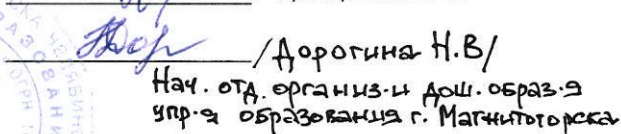 /Дорогина Н.В/
Нач. отд. организ-и дош. образ-я
упр-я образования г. Магнитогорска